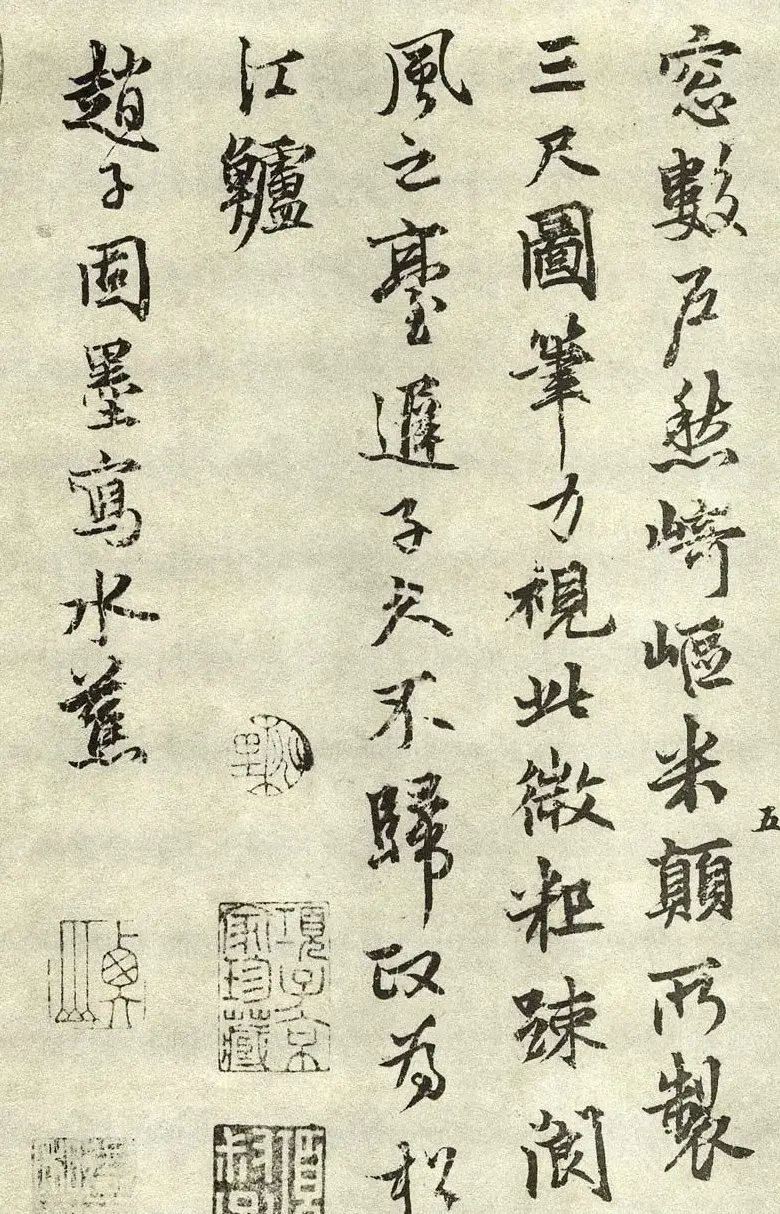 五
窓數戶愁崎嶇米顛所製
三尺圖筆力視此微粗踈閬
風之臺遲子久不歸政為松
江鱸
趙子固墨寫水蕉
項子京家珍藏